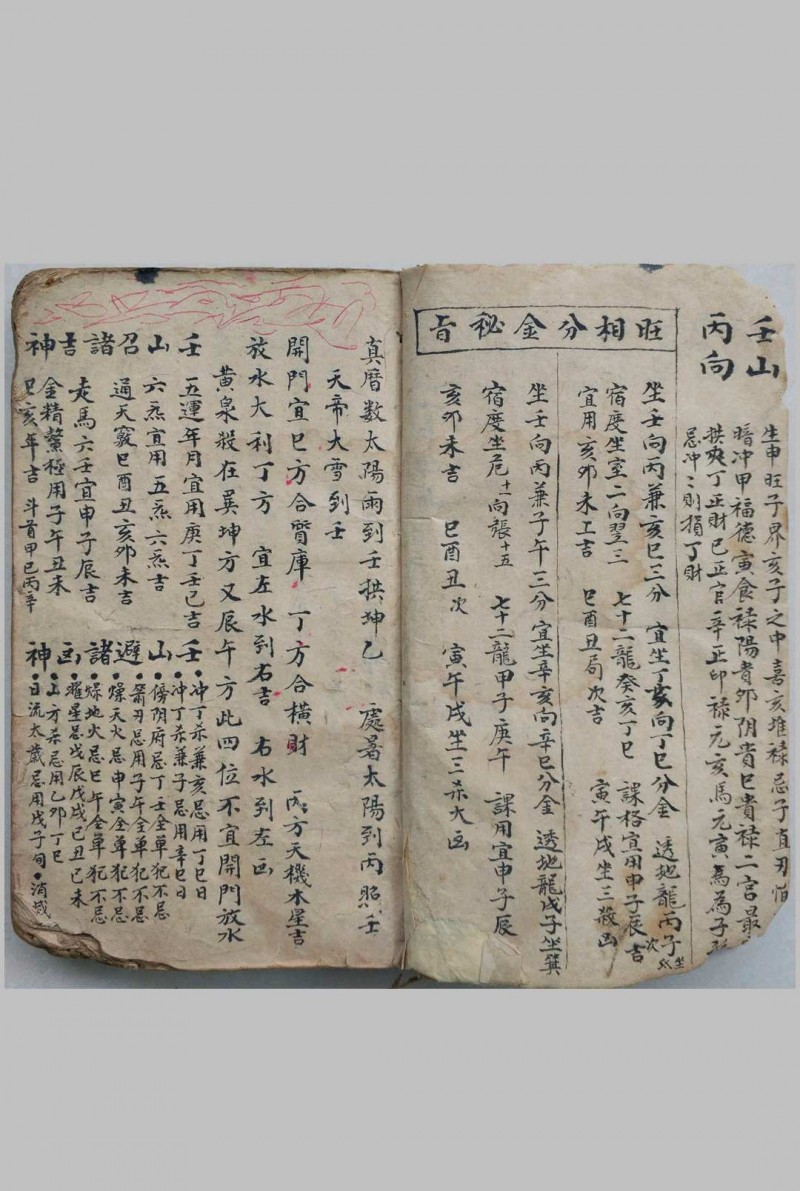 壬山
丙向
生申旺子界亥子之中喜亥堆祿忌子直刃怕
暗冲甲福德寅食祿陽貴卯阴貴巳貴祿二宮最
拱夾丁正財巳正官辛正印祿元亥馬元寅為為子
忌冲〻則損丁財
旺相分金秘旨
坐壬向丙兼亥巳三分 宜坐丁亥向丁巳分金 透地龍丙子坐
宿度坐室二向翌三 七十二龍癸亥丁巳 課格宜用申子辰吉次
宜用亥卯未工吉 巳酉丑局次吉 寅午戌坐三殺凶
坐壬向丙兼子午三分宜坐辛亥向辛巳分金 透地龍戊子坐箕
宿度坐危十一向張十五 七十二龍甲子庚午 課用宜申子辰
亥卯未吉 巳酉丑次 寅午戌坐三杀大凶
真曆数太陽雨到壬拱坤乙 處暑太陽到丙照壬
天帝大雪到壬
開門宜巳方合質庫 丁方合橫財 丙方天機木星吉
放水大利丁方 宜左水到右吉 右水到左凶
黄泉殺在巽坤方又辰午方此四位不宜開門放水
壬山召諸吉神
五運年月宜用庚丁壬己吉
六炁宜用五炁六炁吉
通天竅巳酉丑亥卯未吉
走馬六壬宜申子辰吉
金精鰲極用子午丑未
巳亥年吉 斗首甲巳丙辛
壬山避諸凶神
•冲丁杀兼亥忌用丁巳日
•冲丁杀兼子忌用辛巳日
•傍阴府忌丁壬全單犯不忌
•箭刃忌用子午全單犯不忌
•燥天火忌申寅全單犯不忌
•燥地火忌巳午全單犯不忌
•曜星忌戊辰戊戌己丑己未
•山方杀忌用乙卯丁巳
•日流太歲忌用戊子旬•消滅